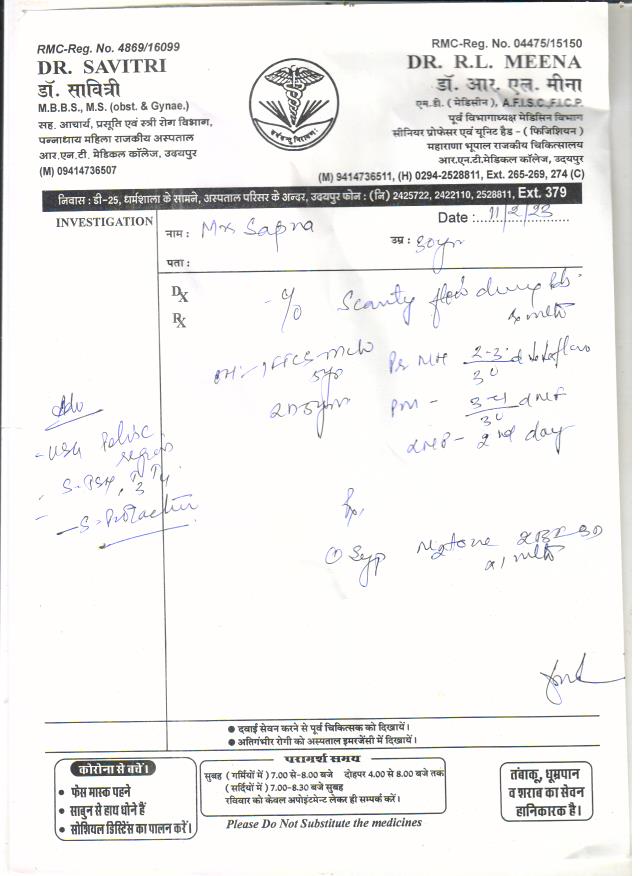 RMC-Reg. No. 4869/16099
DR. SAVITRI
डॉ. सावित्री
M.B.B.S., M.S. (obst. & Gynae.)
सह. आचार्य, प्रसूति एवं स्त्री रोग विभाग,
पन्नाधाय महिला राजकीय अस्पताल
आर.एन.टी. मेडिकल कॉलेज, उदयपुर
(M) 09414736507
RMC-Reg. No. 04475/15150
DR. R.L. MEENA
डॉ. आर. एल. मीना
एम.डी. ( मेडिसीन ), A.F.I.S.C.,F.I.C.P.
पूर्व विभागाध्यक्ष मेडिसिन विभाग
सीनियर प्रोफेसर एवं यूनिट हैड - ( फिजिशियन )
महाराणा भूपाल राजकीय चिकित्सालय
आर.एन.टी.मेडिकल कॉलेज, उदयपुर
(M) 9414736511, (H) 0294-2528811, Ext. 265-269, 274 (C)
निवास : डी-25, धर्मशाला के सामने, अस्पताल परिसर के अन्दर, उदयपुर फोन : (नि) 2425722, 2422110, 2528811, Ext. 379
INVESTIGATION
Date : 11/2/23
नाम : Mrs Sapna
उम्र : 30yr
पता :
Dx
Rx
- c/o Scanty flow during
Adv
- USG Pelvic region
- S. TSH, T3 T4
- S. Prolactin
3-4
30
LMP - 2nd day
Rx,
① Syp
x 1 mth
● दवाई सेवन करने से पूर्व चिकित्सक को दिखायें।
● अतिगंभीर रोगी को अस्पताल इमरजेंसी में दिखायें।
कोरोना से बचें।
• फेस मास्क पहने
• साबुन से हाथ धोने हैं
• सोशियल डिस्टेंस का पालन करें।
परामर्श समय
सुबह ( गर्मियों में ) 7.00 से-8.00 बजे दोहपर 4.00 से 8.00 बजे तक
( सर्दियों में ) 7.00-8.30 बजे सुबह
रविवार को केवल अपोइंटमेन्ट लेकर ही सम्पर्क करें।
Please Do Not Substitute the medicines
तंबाकू, धूम्रपान
व शराब का सेवन
हानिकारक है।